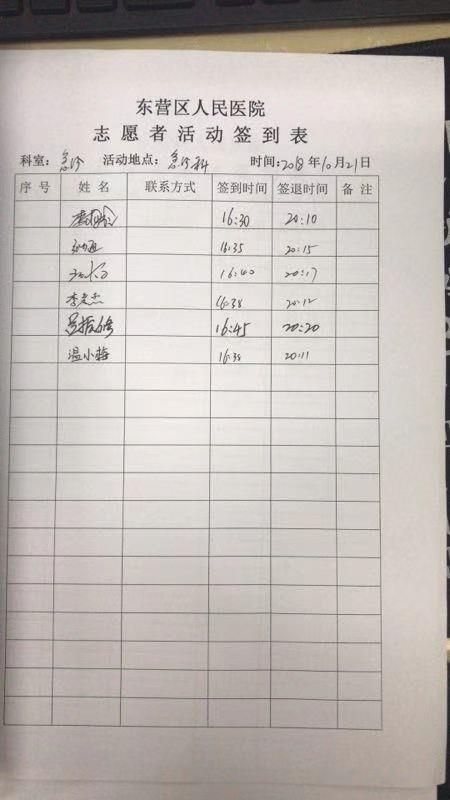 东营区人民医院
志愿者活动签到表
科室：急诊 活动地点：急诊科 时间：2018年10月21日
序号 姓名 联系方式 签到时间 签退时间 备注
16:30 20:10
16:35 20:15
16:40 20:17
李老杰 16:38 20:12
吕振修 16:45 20:20
温小梅 16:38 20:11